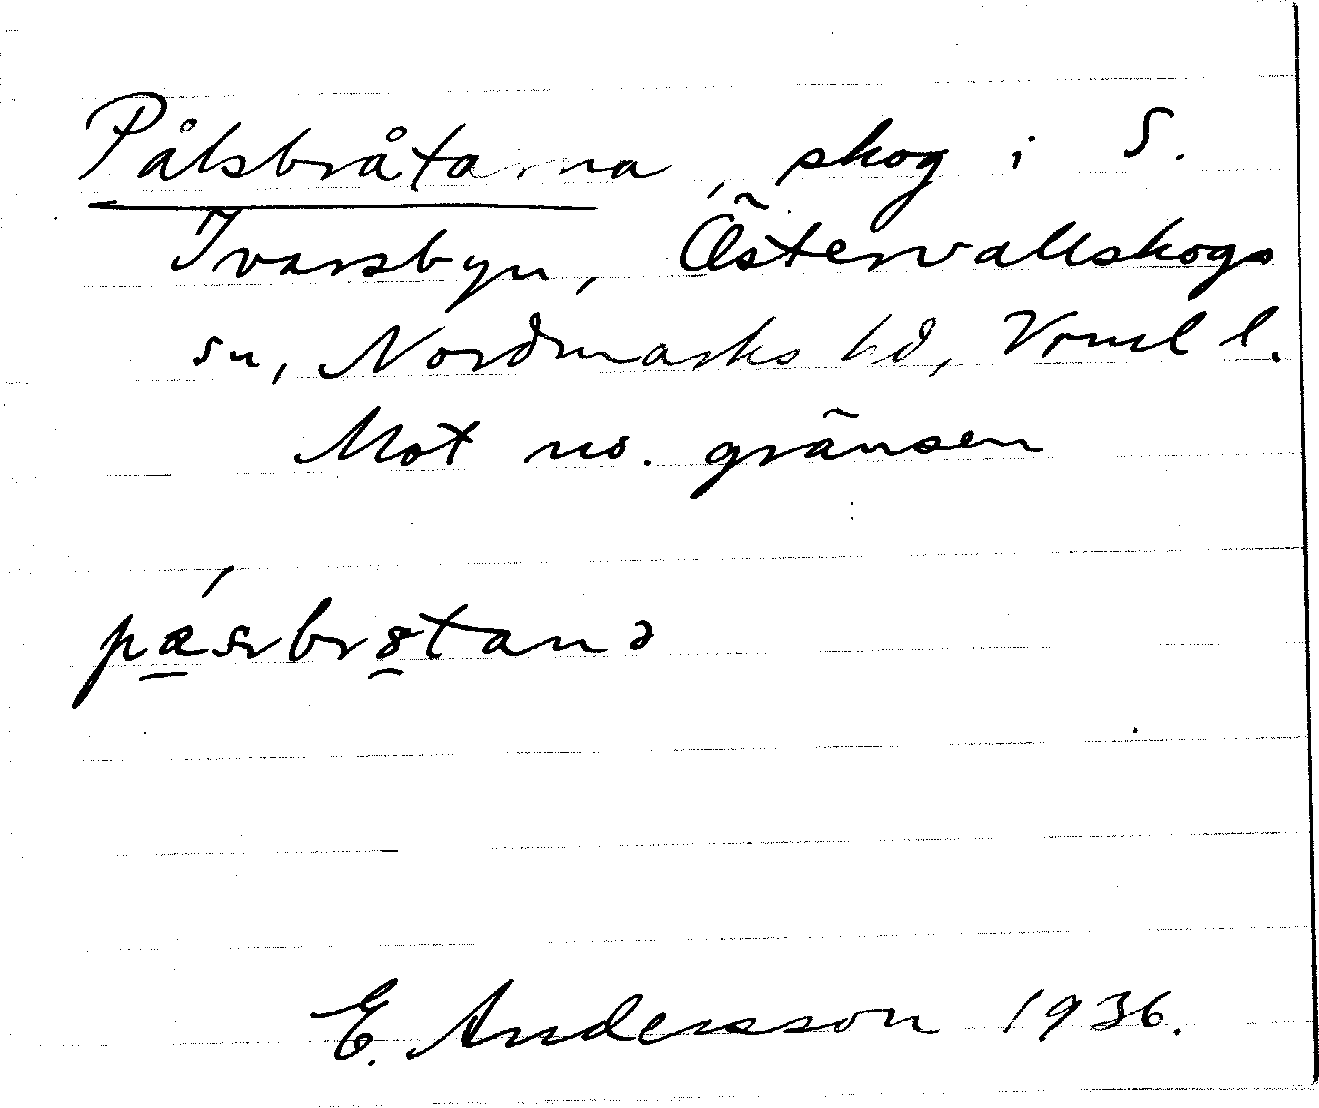 Pålsbråtarna, skog i S.
Ivarsbyn, Östervallskogs
sn, Nordmarks hd, Vrml l.
Mot no. gränsen
E. Andersson 1936.